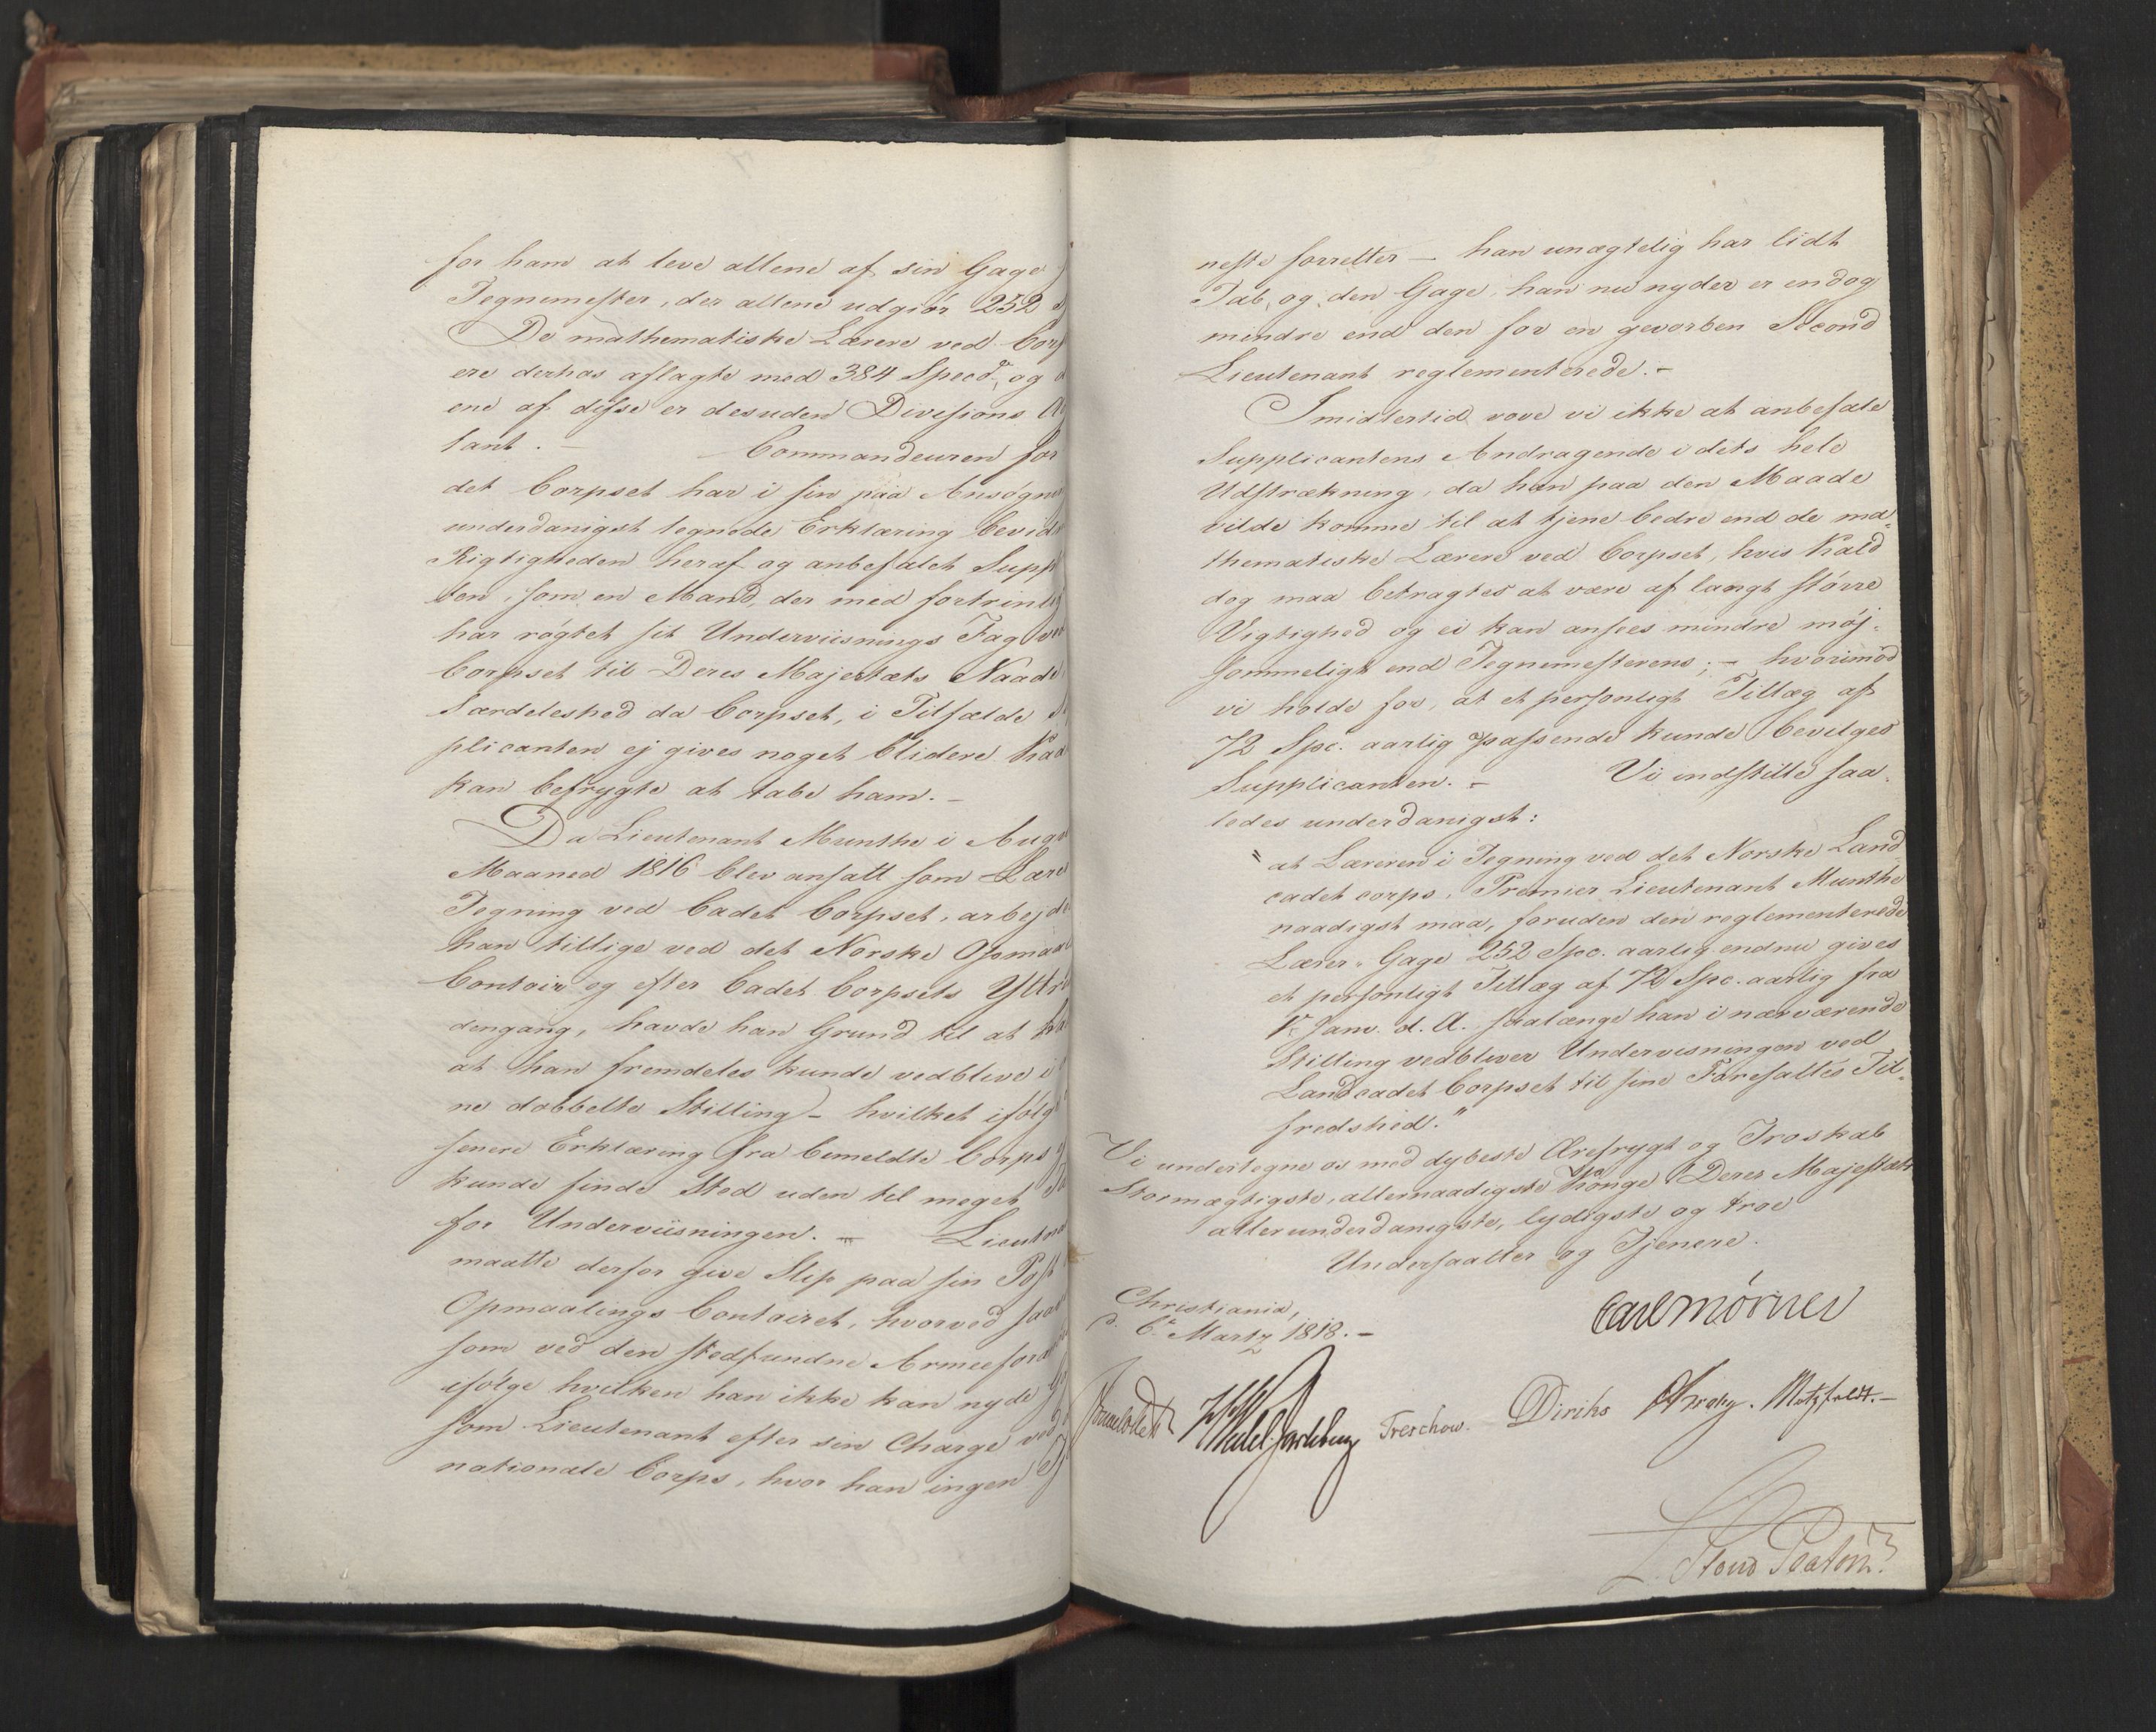 for ham at leve allene af sin Gage
Tegnemester, der allene udgiør 252
De mathematiske Lærere ved Corp
ere derhos aflagte med 384 Specd., og
ene af disse er desuden Divisions
tant. – Commandeuren for
det Corpset har i sin paa Ansøgn
underdanigst tegnede Erklæring bevid
Rigtigheden heraf og anbefalet Supp
ten, som en Mand, der med fortrinlig
har røgtet sit Underviisnings Fag ved
Corpset til Deres Majestæts Naade
Særdeleshed da Corpset, i Tilfælde
plicanten ej gives noget blidere Kaa
kan befrygte at tabe ham. –
Da Lieutenant Munthe i Augu
Maaned 1816 blev ansatt som Lære
Tegning ved Cadet Corpset, arbejde
han tillige ved det Norske Opmaal
Contoir og efter Cadet Corpsets Yttr
dengang, havde han Grund til at
at han fremdeles kunde vedblive i
ne dobbelte Stilling – hvilket ifølg
senere Erklæring fra bemeldte Corps
kunde finde Sted uden til meget
for Underviisningen. – Lieutn
maatte derfor give Slip paa sin Post
Opmaalings Contoiret, hvorved saa
som ved den stedfundne Armeeforan
ifølge hvilken han ikke kan nyde
som Lieutenant efter sin Charge ved
nationale Corps, hvor han ingen
neste forretter – han unægtelig har lidt
Tab, og den Gage, han nu nyder er endog
mindre end den for en gevorben Second
Lieutenant reglementerede. –
Imidlertid vove vi ikke at anbefale
Supplicantens Andragende i dets hele
Udstrækning, da han paa den Maade
vilde komme til at tjene bedre end de ma=
thematiske Lærere ved Corpset, hvis Kald
dog maa betragtes at være af langt større
Vigtighed og ei kan ansees mindre møj=
sommeligt end Tegnemesterens; – hvorimod
vi holde for, at et personligt Tillæg af
72 Spc. aarlig passende kunde bevilges
Supplicanten. – Vi indstille saa=
ledes underdanigst:
"at Læreren i Tegning ved det Norske Land
cadet corps, Premier Lieutenant Munthe
naadigst maa, foruden den reglementerede
Lærer=Gage 252 Spc. aarlig endnu gives
et personligt Tillæg af 72 Spc. aarlig fra
1r Janv. d. A. saalænge han i nærværende
Stilling vedbliver Undervisningen ved
Landcadet Corpset til sine Foresattes Til=
fredshed."
Vi undertegne os med dybeste Ærefrygt og Troskab
Stormægtigste, allernaadigste Konge Deres Majestæts
allerunderdanigste, lydigste og troe
Undersaatter og Tjenere.
Christiania,
d. 6te Martz 1818. –
Carl Mörner
Sommerfeldt Wedel Jarlsberg Treschow. Diriks Krohg. Motzfeldt. –
L. Stoud Platou